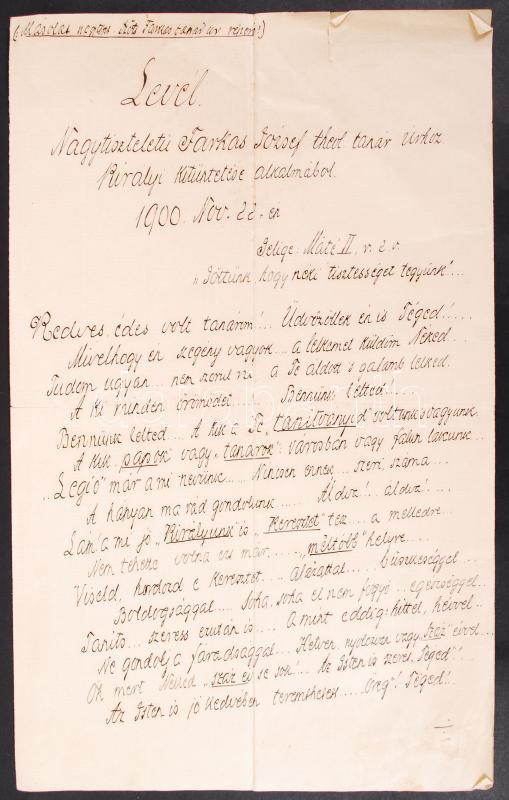 (Másolat
Levél.
Nagytiszteletű Farkas József theol. tanár Úrhoz
Királyi kitüntetése alkalmából.
1900. Nov. 22-én
Jelige: Máté II. r. 2. v.
„Jöttünk, hogy néki tisztességet tegyünk"...
Kedves, édes volt tanárom!... Üdvözöllek én is Téged!.....
Mivelhogy én szegény vagyok... a lelkemet küldöm Néked...
Tudom ugyan... nem szorul rá a Te áldott s galamb lelked.
A ki minden örömödet ... Bennünk lelted....
Bennünk lelted.... A kik a Te „tanítványid" voltunk s vagyunk.
A kik „papok" vagy „tanárok": városban vagy falun lakunk...
„Légió" már a mi nevünk..... Nincsen ennek... szeri, száma...
A hányan má rád gondolunk..... Áldva!.. áldva!.....
Lám! a mi jó „Királyunk" is „Keresztet" tez... a melledre...
Nem tehette volna ezt már...... „méltóbb" helyre....
Viseld, hordozd e keresztet.... alázattal.... büszkeséggel...
Boldogsággal.... Soha, soha el nem fogyó... egészséggel...
Taníts... szeress ezután is.... A mint eddig: hittel, hévvel..
Ne gondolj a fáradsággal... Hetven, nyolczvan vagy „száz" évvel...
Oh mert Néked „száz év" se sok!... Az Isten is szeret „Téged"!..
Az Isten is jó kedvében teremthetett.... „Öreg"! Téged!..